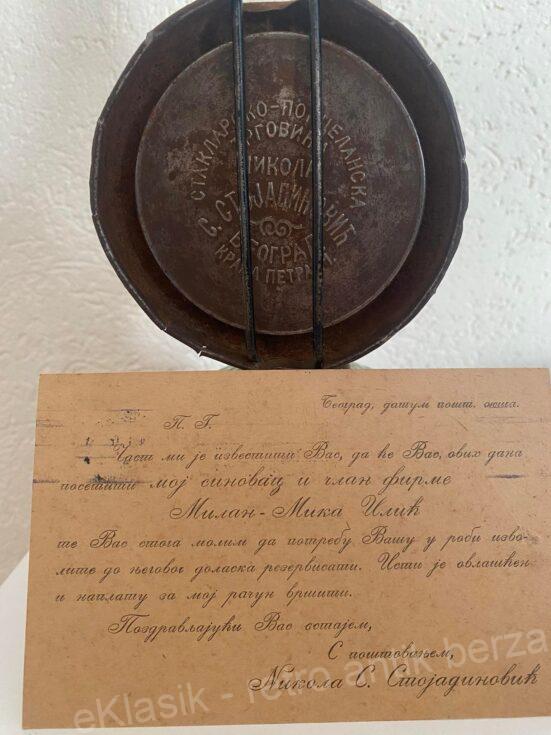 СТАКЛАРСКО-ПОРЦЕЛАНСКА
ТРГОВИНА
НИКОЛА
С. СТОЈАДИНОВИЋ
БЕОГРАД
КРАЉА ПЕТРА
Београд, датум пошт. жига.
П. Г.
Част ми је известити Вас, да ће Вас, ових дана
посетити мој синовац и члан фирме
Милан-Мика Илић
те Вас стога молим да потребу Вашу у роби изво-
лите до његовог доласка резервисати. Исти је овлашћен
и наплату за мој рачун вршити.
Поздрављајући Вас остајем,
С поштовањем,
Никола С. Стојадиновић
eKlasik - retro antik berza